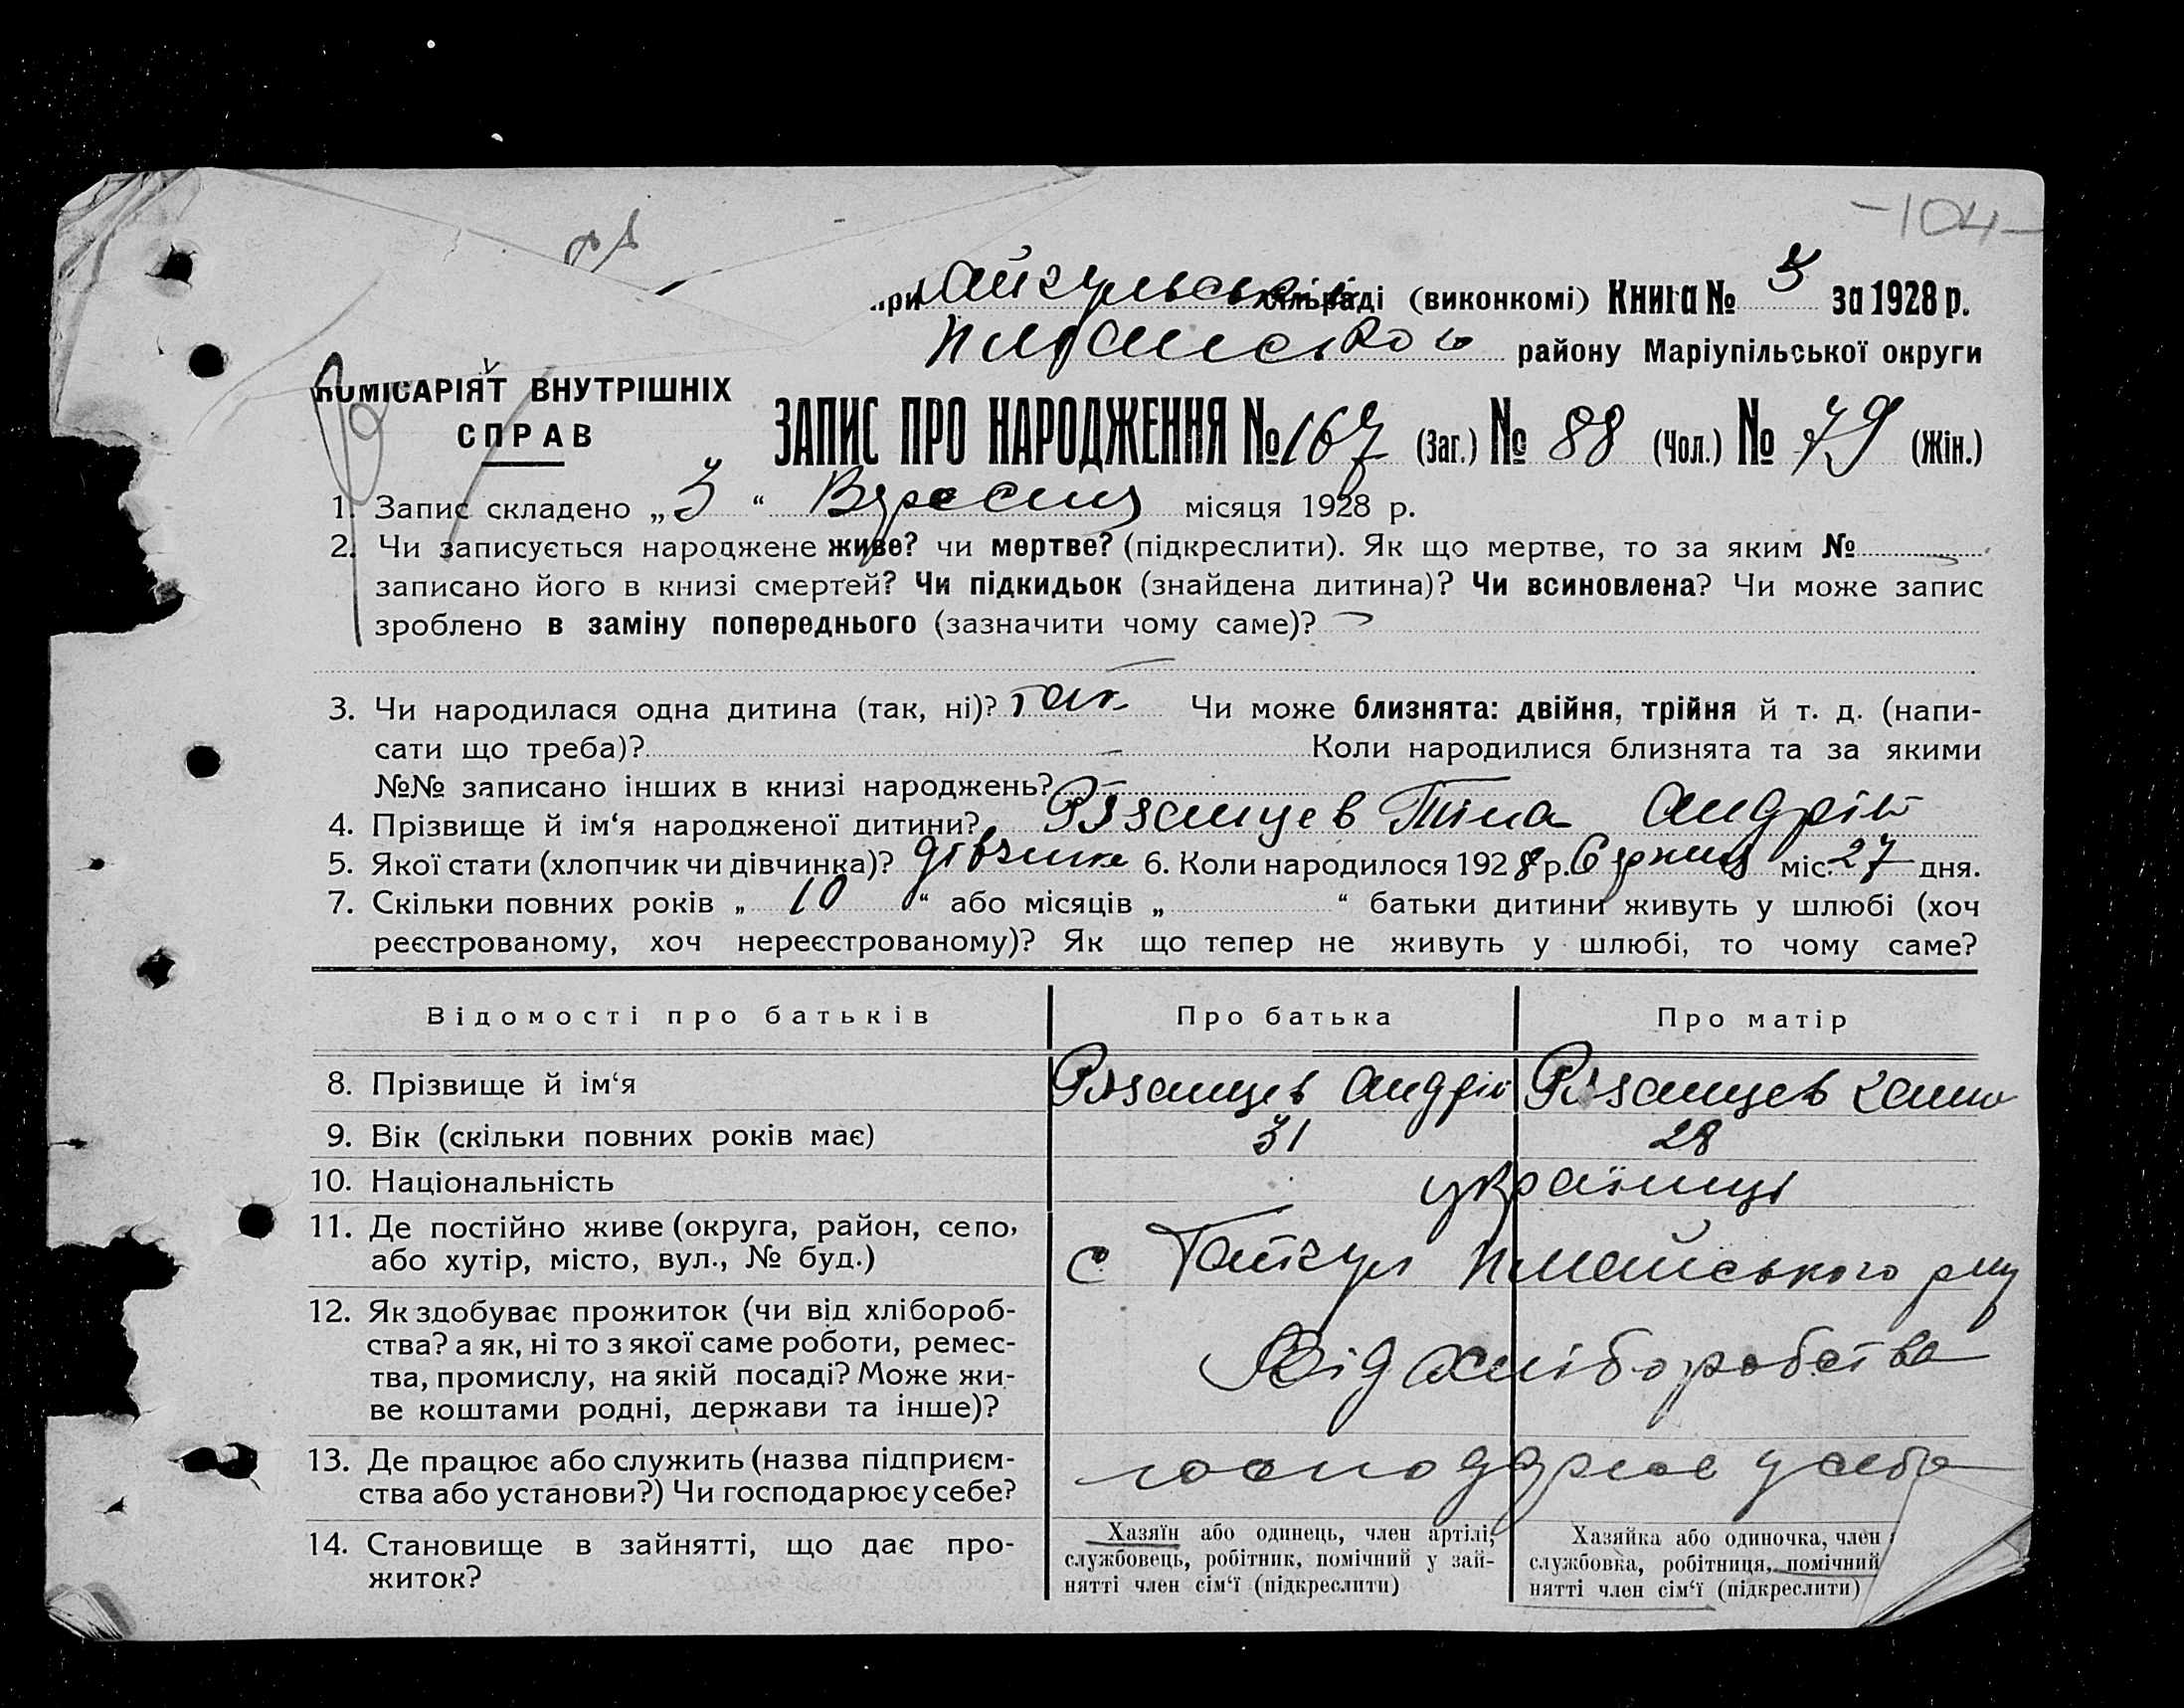 -104-
при сільраді (виконкомі) Книга № 3 за 1928 р.
району Маріупільської округи
КОМІСАРІЯТ ВНУТРІШНІХ
СПРАВ
ЗАПИС ПРО НАРОДЖЕННЯ № 167 (Заг.) № 88 (Чол.) № 79 (Жін.)
1. Запис складено „ 3 “ Вересня місяця 1928 р.
2. Чи записується народжене живе? чи мертве? (підкреслити). Як що мертве, то за яким №
записано його в книзі смертей? Чи підкидьок (знайдена дитина)? Чи всиновлена? Чи може запис
зроблено в заміну попереднього (зазначити чому саме)?
3. Чи народилася одна дитина (так, ні)? так Чи може близнята: двійня, трійня й т. д. (напи-
сати що треба)? — Коли народилися близнята та за якими
№№ записано інших в книзі народжень?
4. Прізвище й ім‘я народженої дитини? Рязанцев Андрій
5. Якої стати (хлопчик чи дівчинка)? дівчинка 6. Коли народилося 1928 р. Серпня міс. 27 дня.
7. Скільки повних років „ 10 “ або місяців „ “ батьки дитини живуть у шлюбі (хоч
реєстрованому, хоч нереєстрованому)? Як що тепер не живуть у шлюбі, то чому саме?
Відомості про батьків Про батька Про матір
8. Прізвище й ім‘я Рязанцев Андрій Рязанцев Ганна
9. Вік (скільки повних років має) 31 28
10. Національність українці
11. Де постійно живе (округа, район, село,
або хутір, місто, вул., № буд.) с П.майського р-ну
12. Як здобуває прожиток (чи від хлібороб-
ства? а як, ні то з якої саме роботи, ремес-
тва, промислу, на якій посаді? Може жи-
ве коштами родні, держави та інше)? Від хліборобства
13. Де працює або служить (назва підприєм-
ства або установи?) Чи господарює у себе? господарює у себе
14. Становище в зайнятті, що дає про-
житок?
Хазяїн або одинець, член артілі,
службовець, робітник, помічний у зай-
нятті член сім‘ї (підкреслити)
Хазяйка або одиночка, член
службовка, робітниця, помічний
нятті член сім‘ї (підкреслити)